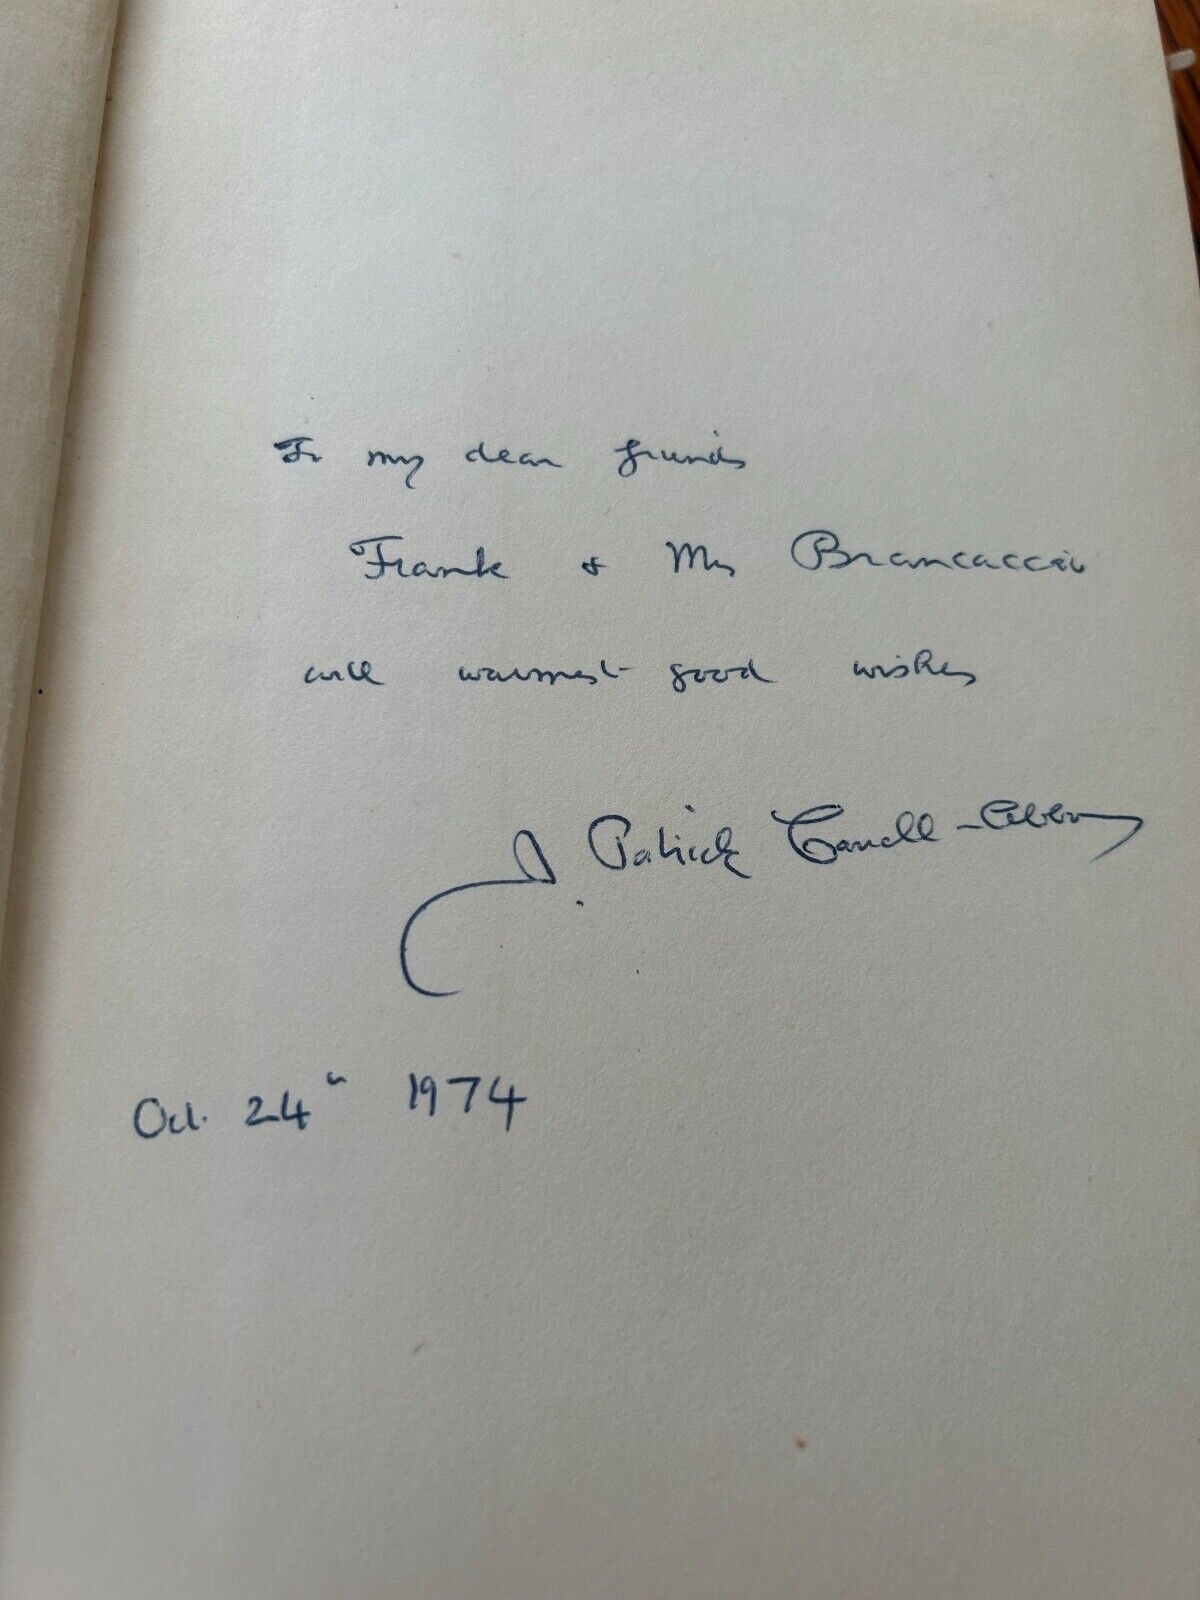 To my dear friends
Frank & Mrs Brancaccio
with warmest good wishes
J. Patrick Carroll-Abbing
Oct. 24th 1974